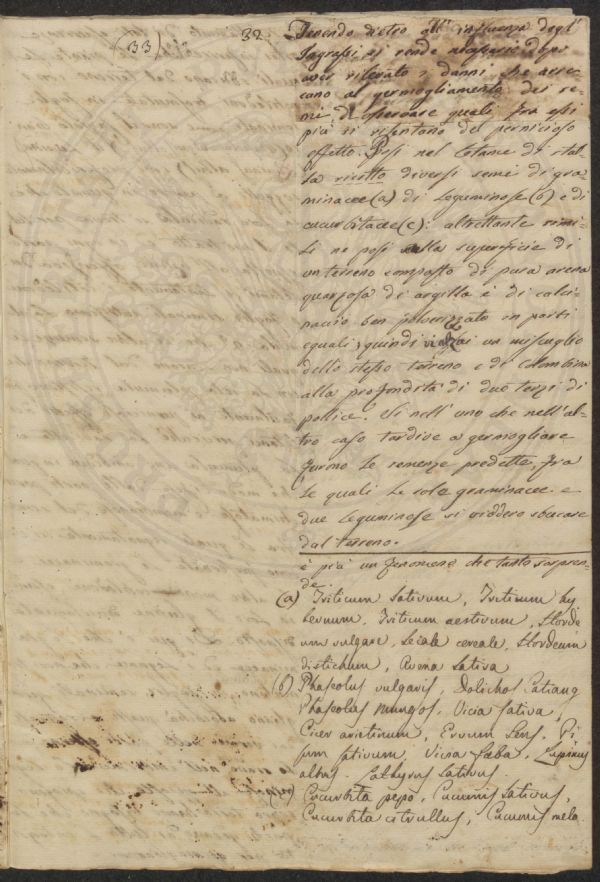 (33)
32.
Tenendo dietro all' influenza degl'
Ingrassi si rende necessario dopo
aver rilevato i danni che arre-
cano al germogliamento dei se-
mi di osservare quali fra essi
più si risentono del pernicioso
effetto. Posi nel letame di stal-
la ricotto diversi semi di gra-
minacee (a) di Leguminose (b) e di
cucurbitacee (c): altrettante simi-
li ne posi sulla superficie di
un terreno composto di pura arena
quarzosa di argilla e di calci-
naccio ben polverizzato in parti
eguali; quindi vi alzai un miscuglio
dello stesso terreno e di Colombina
alla profondità di due terzi di
pollice. Sì nell' uno che nell' al-
tro caso tardive a germogliare
furono le semenze predette, fra
le quali le sole graminacee e
due Leguminose si viddero sbucare
dal terreno.
è più un fenomeno che tanto sorpren-
de.
(a) Triticum sativum, Triticum hy
bernum, Triticum aestivum, Horde
um vulgare, Secale cereale, Hordeum
distichum, Avena sativa
(b) Phaseolus vulgaris, Dolichos Catiang
Phaseolus mungos, Vicia sativa,
Cicer arietinum, Ervum Lens. Pi
sum sativum Vicia faba, Lupinus
albus. Lathyrus sativus.
(c) Cucurbita pepo, Cucumis sativus,
Cucurbita citrullus, Cucumis melo